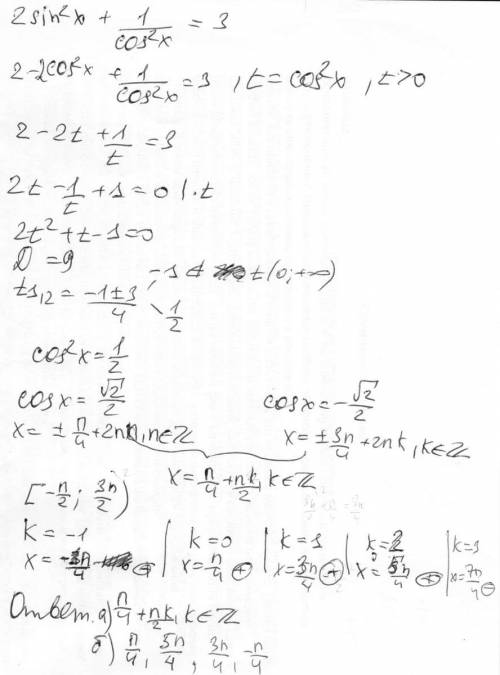 2sin²x + 1/cos²x = 3
2-2cos²x + 1/cos²x = 3 , t = cos²x , t>0
2 - 2t + 1/t = 3
2t - 1/t + 1 = 0 | · t
2t² + t - 1 = 0
D = 9
t1,2 = (-1±3)/4 -1 ∉ t(0;+∞) 1/2
cos²x = 1/2
cosx = √2/2 cosx = -√2/2
x = ± π/4 + 2πn, n∈Z x = ± 3π/4 + 2πk, k∈Z
x = π/4 + πk/2, k∈Z
[-π/2; 3π/2)
k = -1 | k = 0 | k = 1 | k = 2 | k = 3
x = -π/4 ⊕ | x = π/4 ⊕ | x = 3π/4 ⊕ | x = 5π/4 ⊕ | x = 7π/4 ⊖
Ответ. а) π/4 + πk/2, k∈Z
б) π/4, 5π/4, 3π/4, -π/4